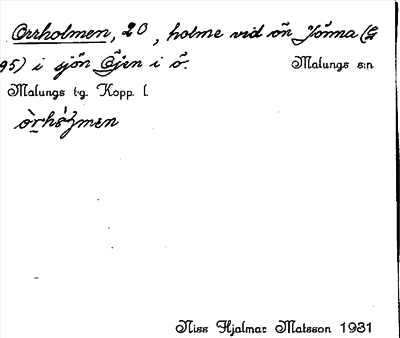 Orrholmen, 20, holme vid ön Jönna (G
95) i sjön Öjen i ö. Malungs s:n
Malungs t:g. Kopp. l.
òrhó̀lmen
Niss Hjalmar Matsson 1931